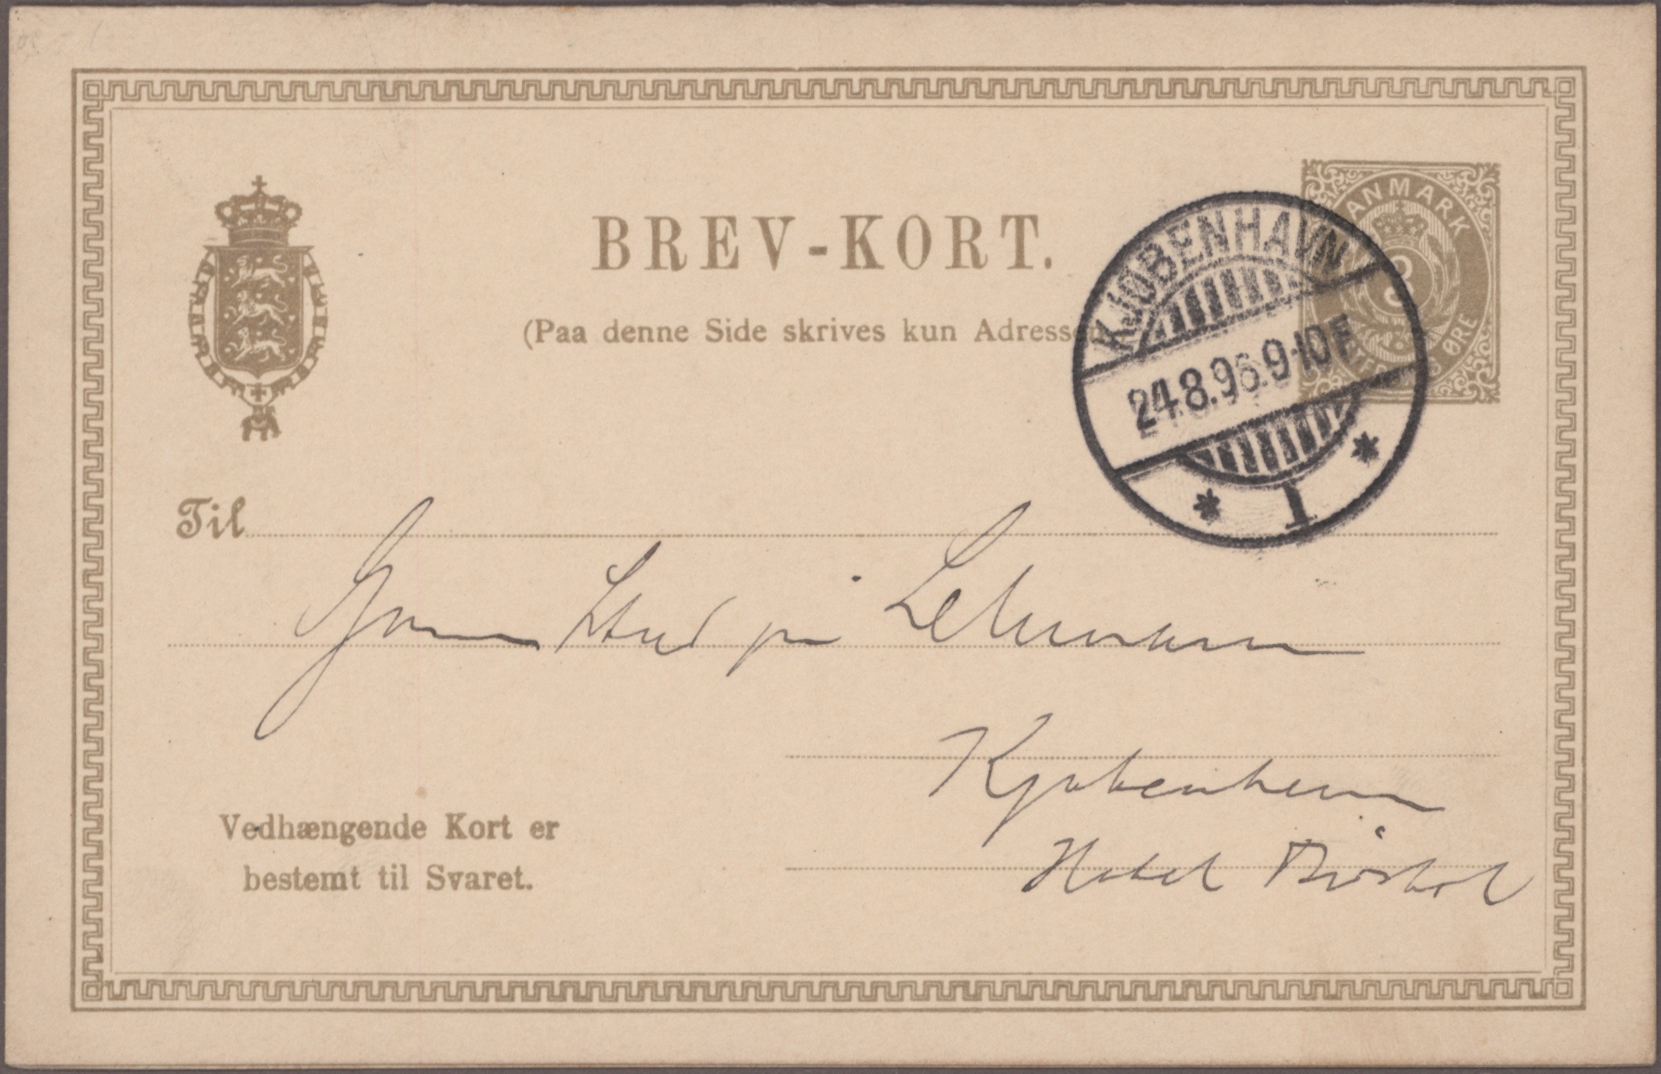 BREV-KORT.
(Paa denne Side skrives kun Adressen
DANMARK
3
ØRE
KJØBENHAVN
24.8.96.9-10F
* 1 *
Til
Lehmann
Kjøbenhavn
Hotel Bristol
Vedhængende Kort er
bestemt til Svaret.